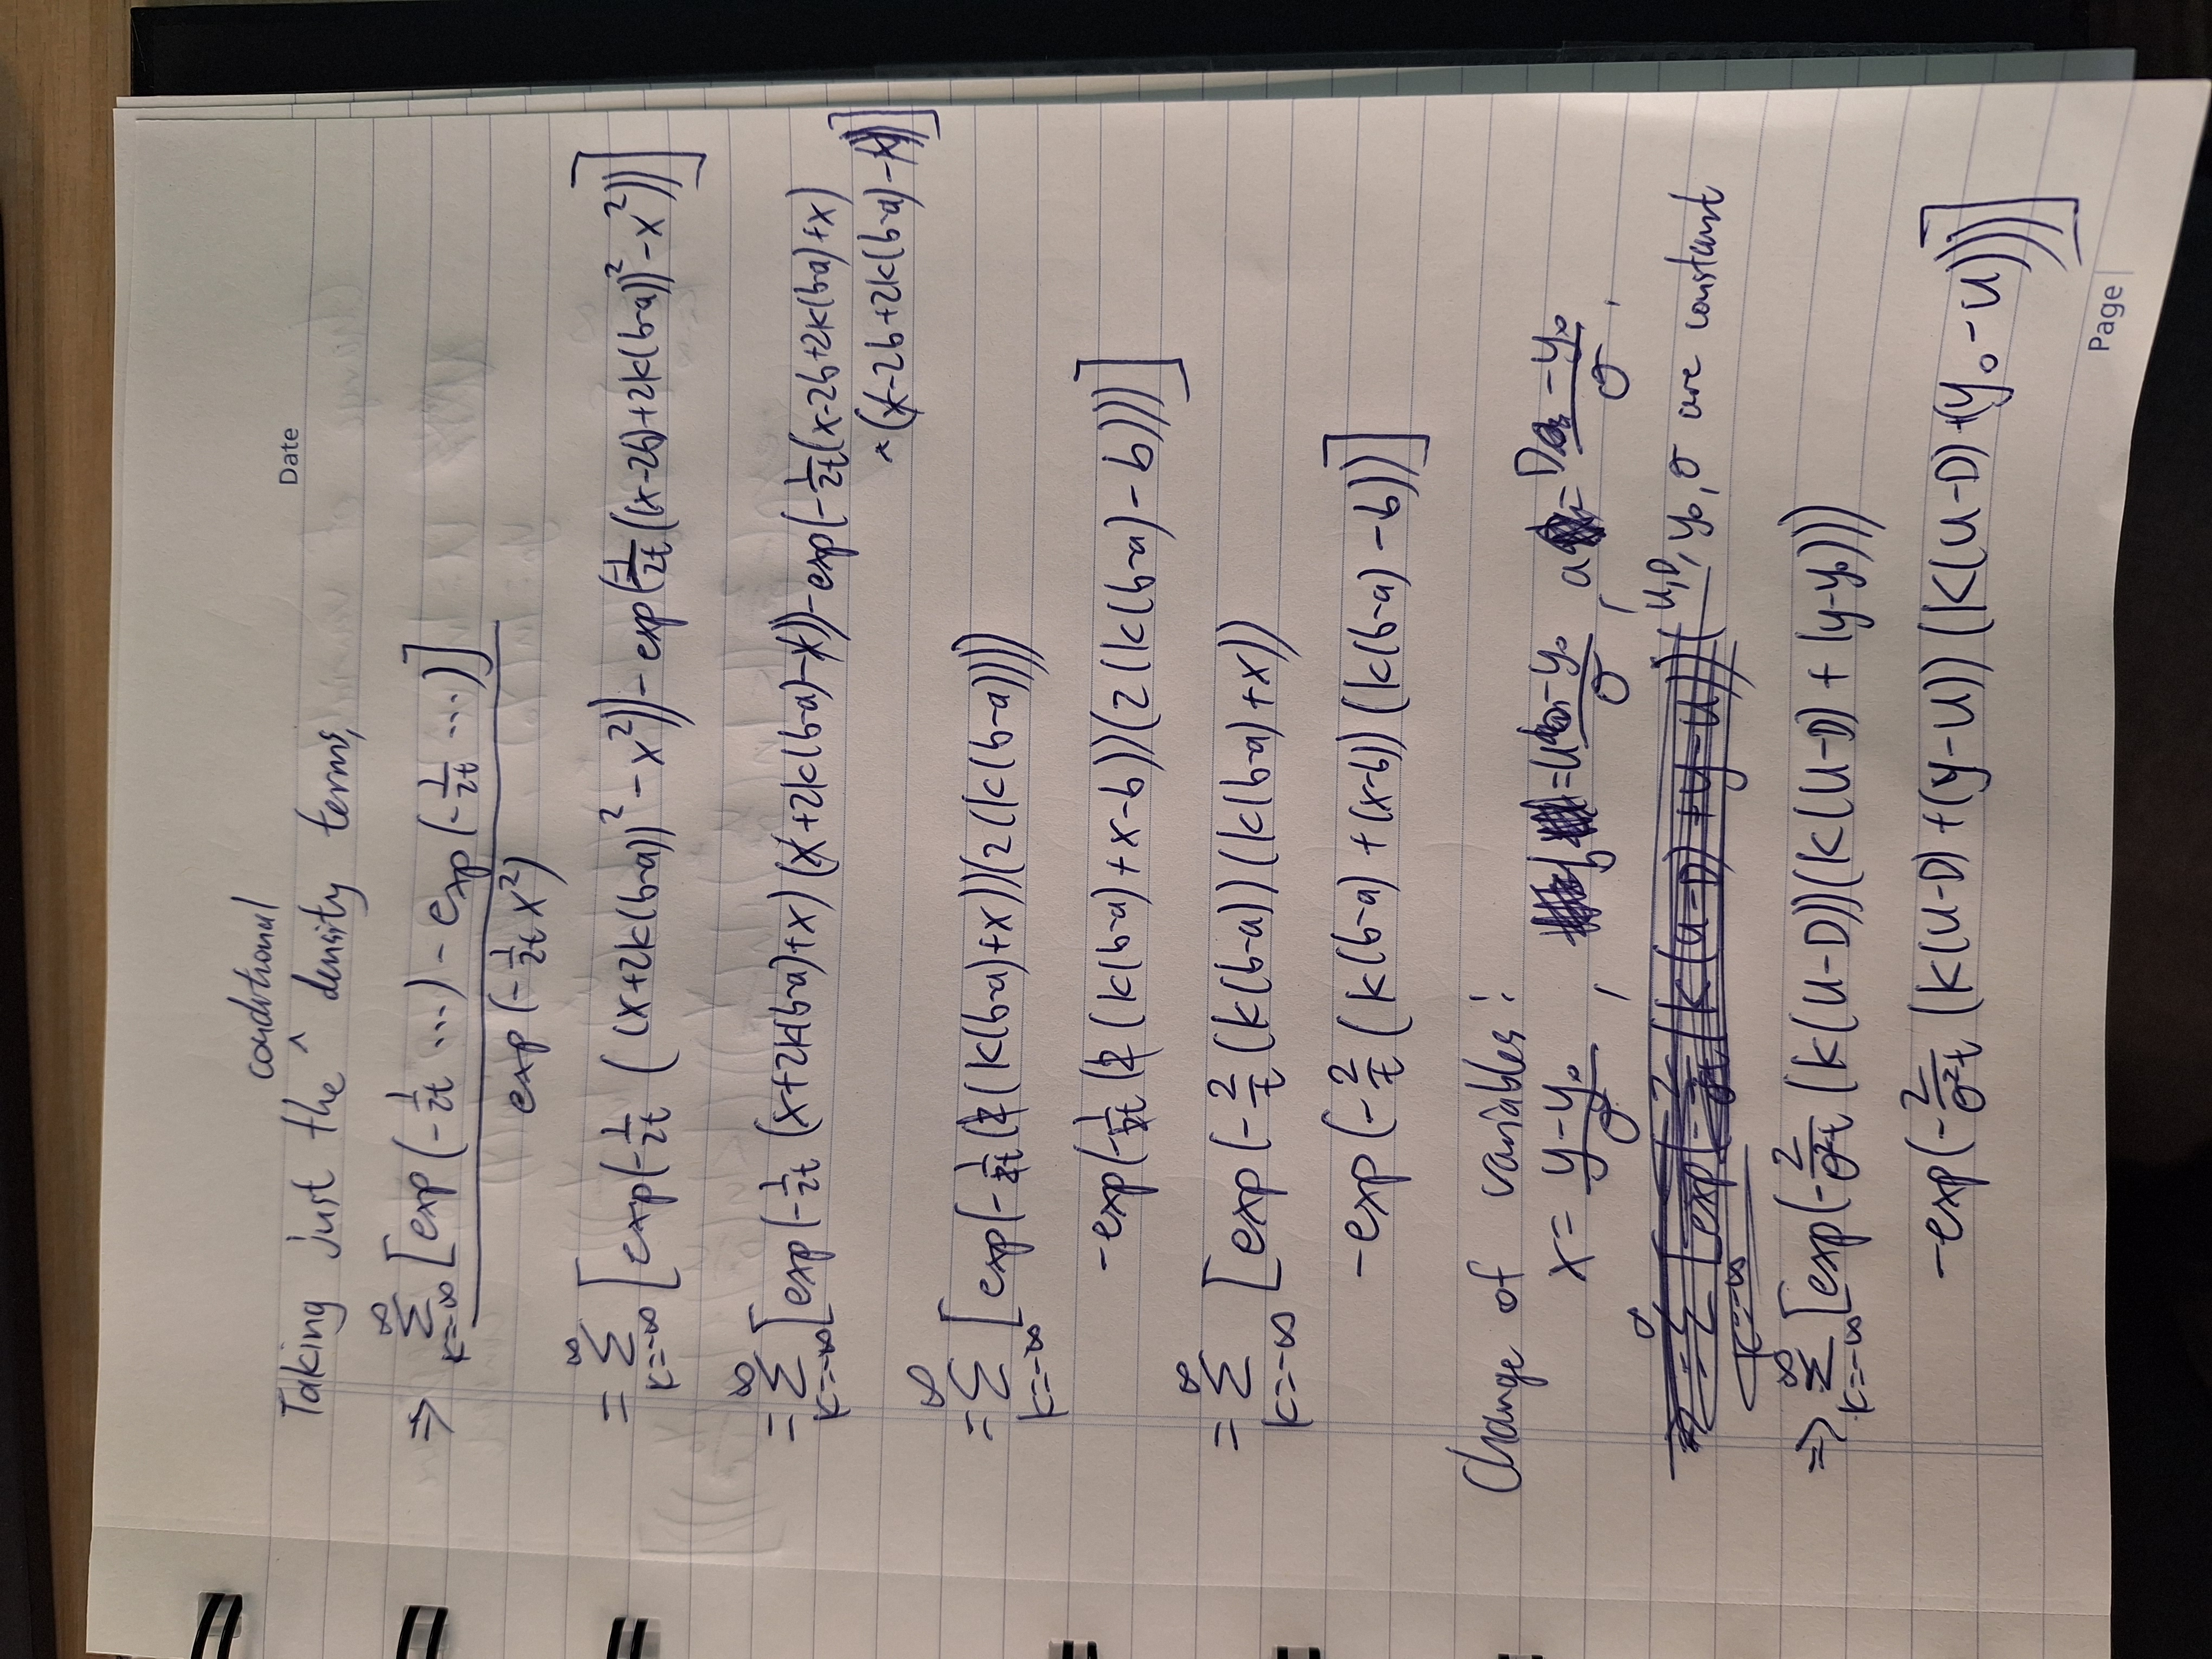 Date
conditional
Taking just the ^ density terms,
⇒ ∞ Σ k=-∞ [exp(-1/2t ...) - exp(-1/2t ...)]
exp(-1/2t x²)
= ∞ Σ k=-∞ [exp(-1/2t ((x+2k(b-a))² - x²)) - exp(-1/2t((x-2b)+2k(b-a))² - x²))]
= ∞ Σ k=-∞ [exp(-1/2t (x+2k(b-a)+x)(x+2k(b-a)-x)) - exp(-1/2t(x-2b+2k(b-a)+x)
×(x-2b+2k(b-a)-x))]
= ∞ Σ k=-∞ [exp(-1/2t (2(k(b-a)+x))(2(k(b-a))))
-exp(-1/2t (2(k(b-a)+x-b))(2(k(b-a)-b)))]
= ∞ Σ k=-∞ [exp(-2/t (k(b-a))(k(b-a)+x))
-exp(-2/t (k(b-a)+(x-b))(k(b-a)-b))]
Change of variables:
x = y-y₀/σ , b = U-y₀/σ , a = D-y₀/σ ,
= Σ k=-∞ [exp(-2/t (k(U-D)+y-U))( U,D, y₀, σ are constant
⇒ ∞ Σ k=-∞ [exp(-2/σ²t (k(U-D))(k(U-D)+(y-y₀)))
-exp(-2/σ²t (k(U-D)+(y-U))(k(U-D)+(y₀-U)))]
Page